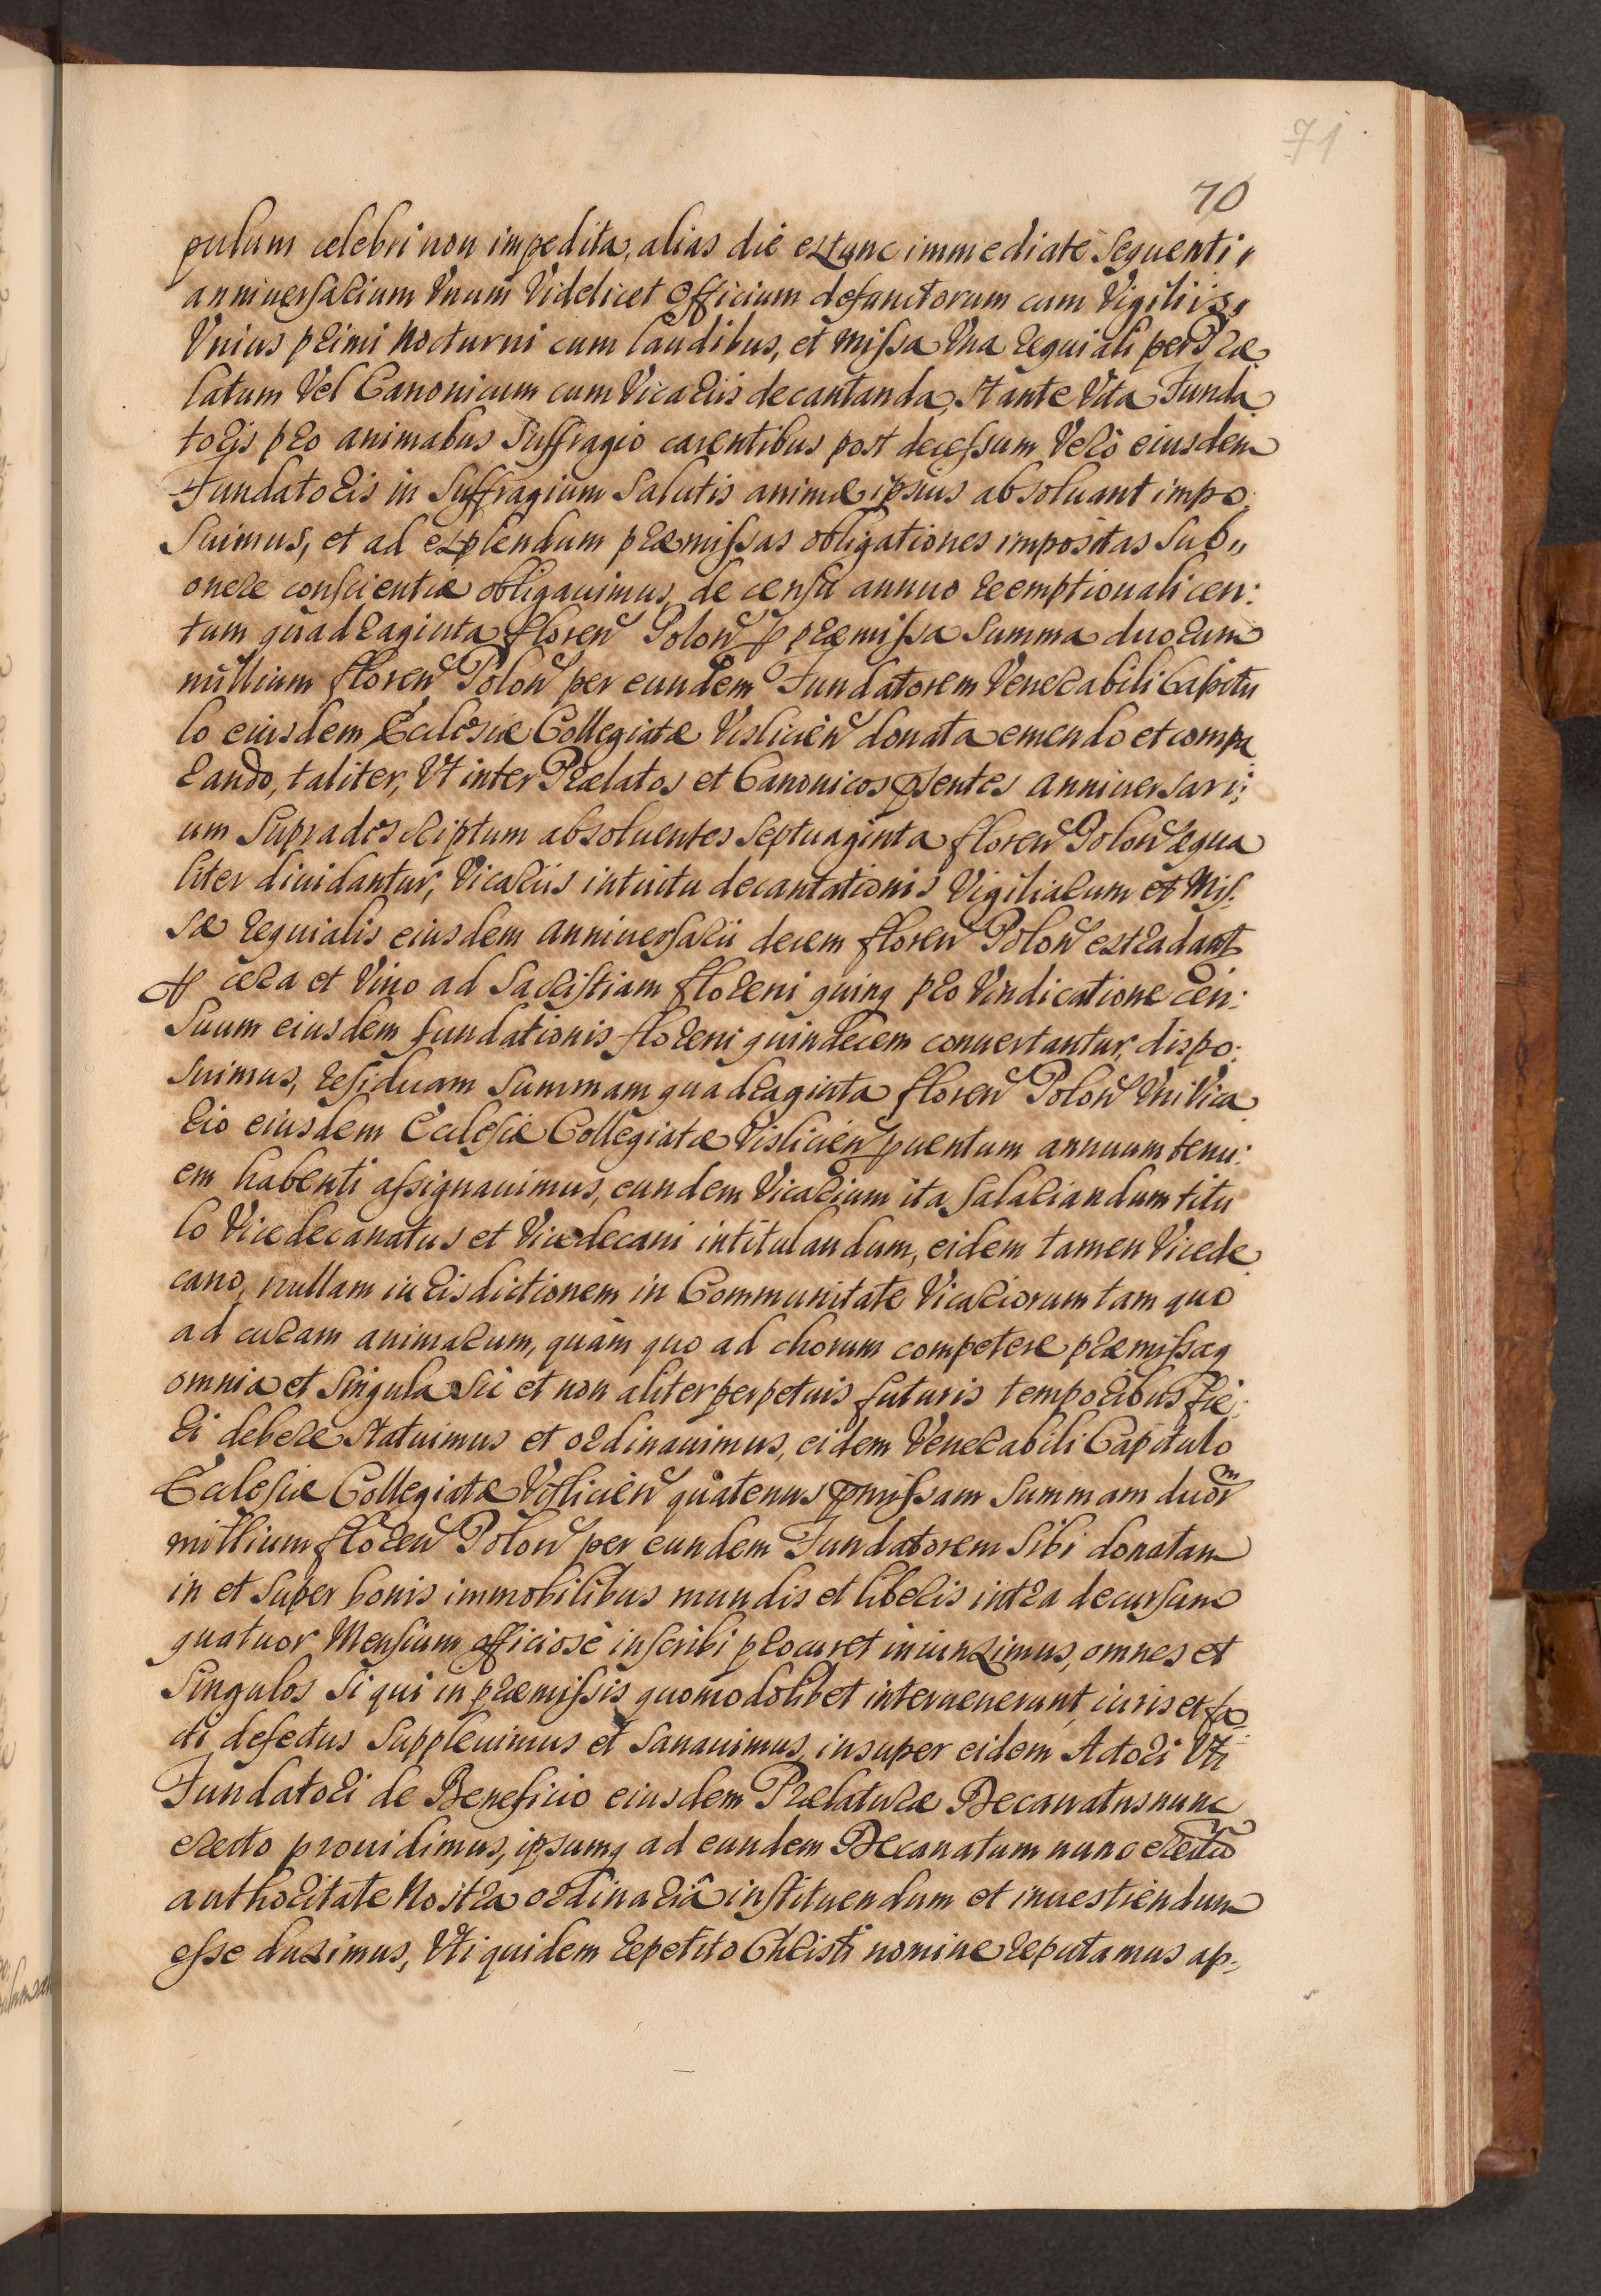 71
70
pulum celebri non impedita, alias die extunc immediatè sequenti,,
anniuersarium Vnum Videlicet Officium defunctorum cum Vigiliis,,
Vnius primi Nocturni cum laudibus, et missa Vna requiali per Præ
latum Vel Canonicum cum Vicariis decantanda, stante Vita Funda
toris pro animabus suffragio carentibus post decessum Verò eiusdem
Fundatoris in suffragium salutis animæ ipsius absoluant impo:
suimus, et ad explendum præmissas obligationes impositas sub,,
onere conscientiæ obligauimus, de censu annuo reemptionali cen:
tum quadraginta floren Polon ꝓ præmissa summa duorum
millium floren Polon per eundem Fundatorem Venerabili Capitu
lo eiusdem Ecclesiæ Collegiatæ Vislicien donata emendo et compa
rando, taliter, Vt inter Prælatos et Canonicos pñtes anniuersari:
um supradescriptum absoluentes septuaginta floren Polon æqua
liter diuidantur, Vicariis intuitu decantationis Vigiliarum et Mis:
sæ requialis eiusdem anniuersarii decem floren Polon extradant
ꝓ cera et Vino ad sacristiam floreni quinq pro Vindicatione cen:
suum eiusdem fundationis floreni quindecem conuertantur, dispo:
suimus, residuam summam quadraginta floren Polon Vni Vica
rio eiusdem Ecclesiæ Collegiatæ Vislicien ꝓuentum annuum tenu:
em habenti assignauimus, eundem Vicarium ita salariandum titu
lo Vicedecanatus et Vicedecani intitulandum, eidem tamen Vicede
cano, nullam iurisdictionem in Communitate Vicariorum tam quo
ad curam animarum, quàm quo ad chorum competere præmissaq
omnia et singula sic et non aliter perpetuis futuris temporibus fie:
ri debere statuimus et ordinauimus, eidem Venerabili Capitulo
Ecclesiæ Collegiatæ Vislicien quatenus pmissam summam duorm
millium floren Polon per eundem Fundatorem sibi donatam
in et super bonis immobilibus mundis et liberis intra decursum
quatuor Mensium officiosè inscribi procuret iniunximus, omnes et
singulos si qui in præmissis quomodolibet interuenerunt iuris et fa
cti defectus suppleuimus et sanauimus, insuper eidem Actori Vti
Fundatori de Beneficio eiusdem Prælaturæ Decanatus nunc
erecto prouidimus, ipsumq ad eundem Decanatum nunc erectũ
authoritate Nostra ordinariâ instituendum et inuestiendum
esse duximus, Vti quidem repetito Christi nomine reputamus ap: